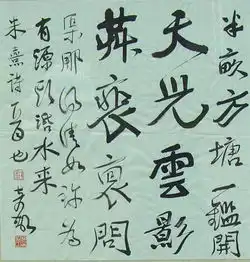 半畝方塘一鑑開
天光雲影
共裴問
渠那得清如許為
有源頭活水来
朱熹詩也